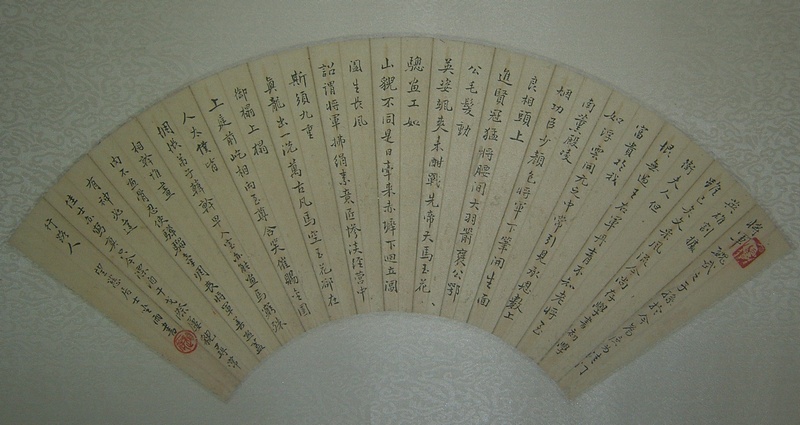 將軍
魏武之子孫於今為庶為清門
英雄割據
雖已矣文采風流今尚存學書初學
衛夫人但
恨無過王右軍丹青不知老將至
富貴於我
如浮雲開元之中常引見承恩數上
南薰殿凌
烟功臣少顏色將軍下筆開生面
良相頭上
進賢冠猛將腰間大羽箭褒公鄂
公毛髮動
英姿颯爽來酣戰先帝天馬玉花
驄畫工如
山貌不同是日牽來赤墀下迥立閶
闔生長風
詔謂將軍拂絹素意匠慘淡經營中
斯須九重
真龍出一洗萬古凡馬空玉花卻在
御榻上榻
上庭前屹相向至尊含笑催賜金圉
人太僕皆
惆悵弟子韓幹早入室亦能畫馬窮殊
相幹惟畫
肉不畫骨忍使驊騮氣凋喪將軍畫善蓋
有神必逢
佳士亦寫真只今漂泊干戈際屢貌尋常
行路人
居士 書